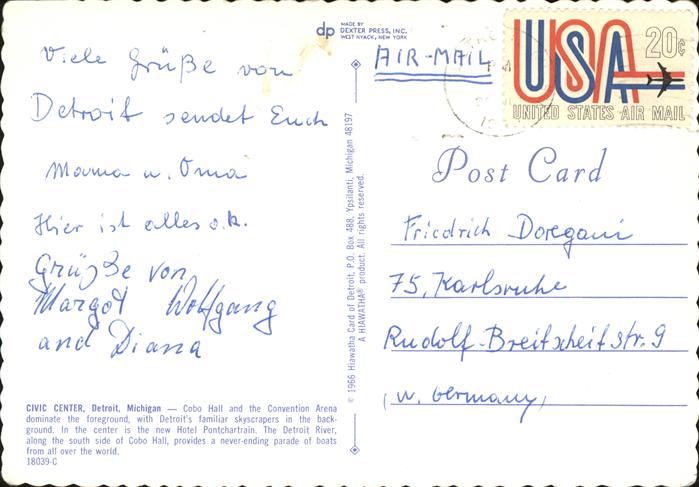 Viele Grüße von
Detroit sendet Euch
Mama u. Oma
Hier ist alles o.k.
Grüße von
Margot Wolfgang
and Diana
CIVIC CENTER, Detroit, Michigan — Cobo Hall and the Convention Arena
dominate the foreground, with Detroit's familiar skyscrapers in the back-
ground. In the center is the new Hotel Pontchartrain. The Detroit River,
along the south side of Cobo Hall, provides a never-ending parade of boats
from all over the world.
18039-C
dp MADE BY
DEXTER PRESS, INC.
WEST NYACK, NEW YORK
© 1966 Hiawatha Card of Detroit, P.O. Box 488, Ypsilanti, Michigan 48197
A HIAWATHA® product. All rights reserved.
AIR-MAIL
USA 20c
UNITED STATES AIR MAIL
Post Card
Friedrich Doregani
75, Karlsruhe
Rudolf-Breitscheitstr. 9
(W. Germany)